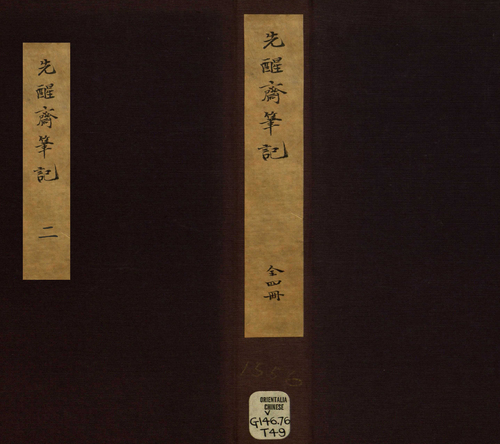 先醒齋筆記
二
先醒齋筆記
全四冊
1556
ORIENTALIA
CHINESE
G146.76
T49